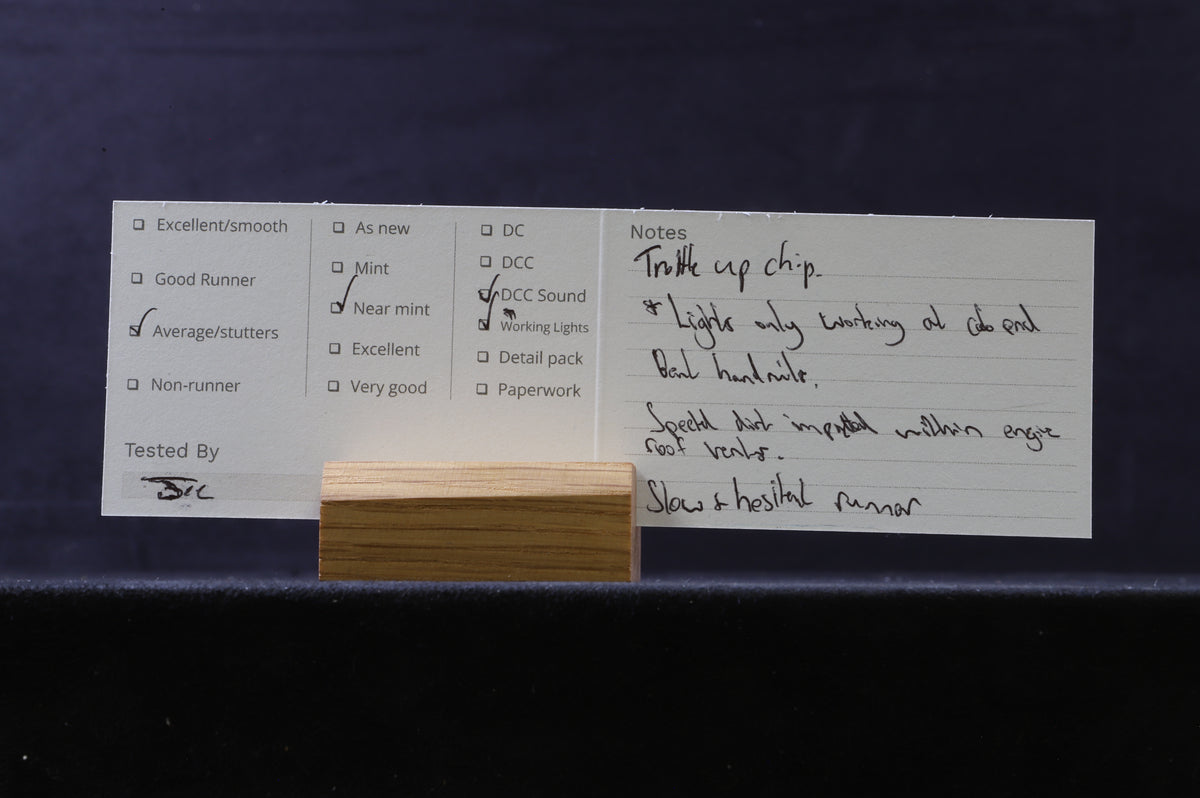 Excellent/smooth
Good Runner
Average/stutters
Non-runner
Tested By
As new
Mint
Near mint
Excellent
Very good
DC
DCC
DCC Sound
*
Working Lights
Detail pack
Paperwork
Notes
up chip.
* Lights only working at cab end
Bent handrails.
dirt within engine
roof vents.
Slow & hesitant runner